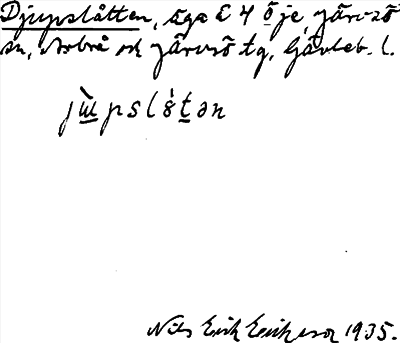 Djupslåtten, äga å 4 Öje, Järvsö
sn, Arbrå och Järvsö tg, Gävleb. l.
jùpslǻtən
Nils Erik Eriksson 1935.